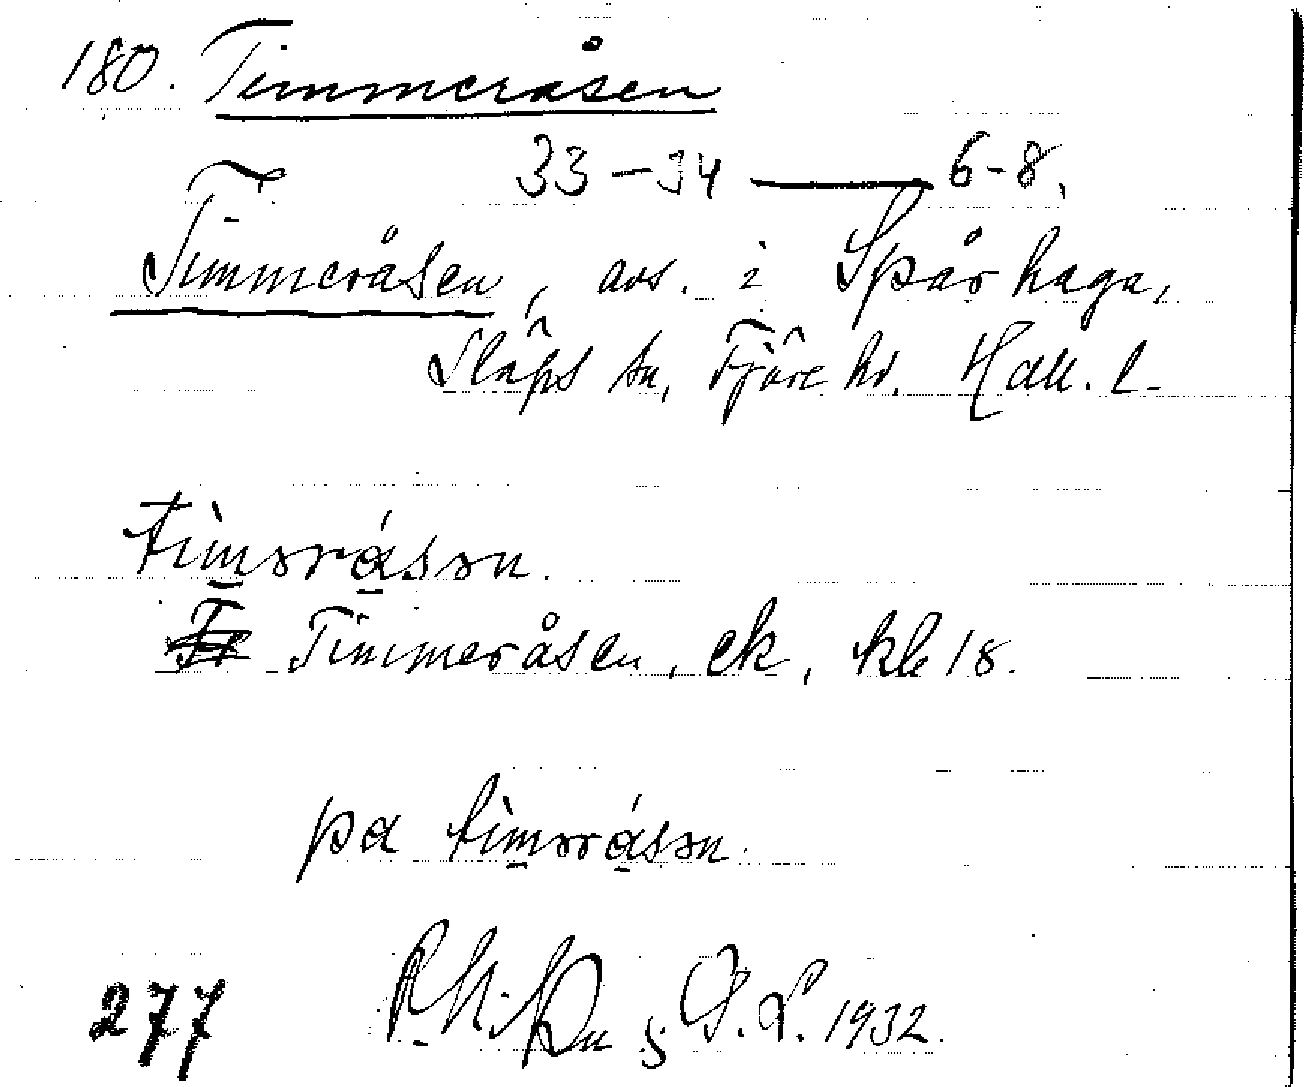 180. Timmeråsen
33-34 — 6-8.
Timmeråsen, avs. i Spårhaga,
Släps sn, Fjäre hd. Hall. l.
tìmərásən.
Timmeråsen, ek, kl 18.
pa tìmərásən.
277 1932.